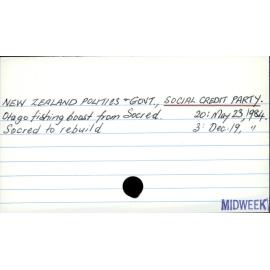 NEW ZEALAND POLITICS & GOVT., SOCIAL CREDIT PARTY.
Otago fishing boost from Socred. 20: May 23, 1984.
Socred to rebuild 3: Dec. 19, "
MIDWEEK